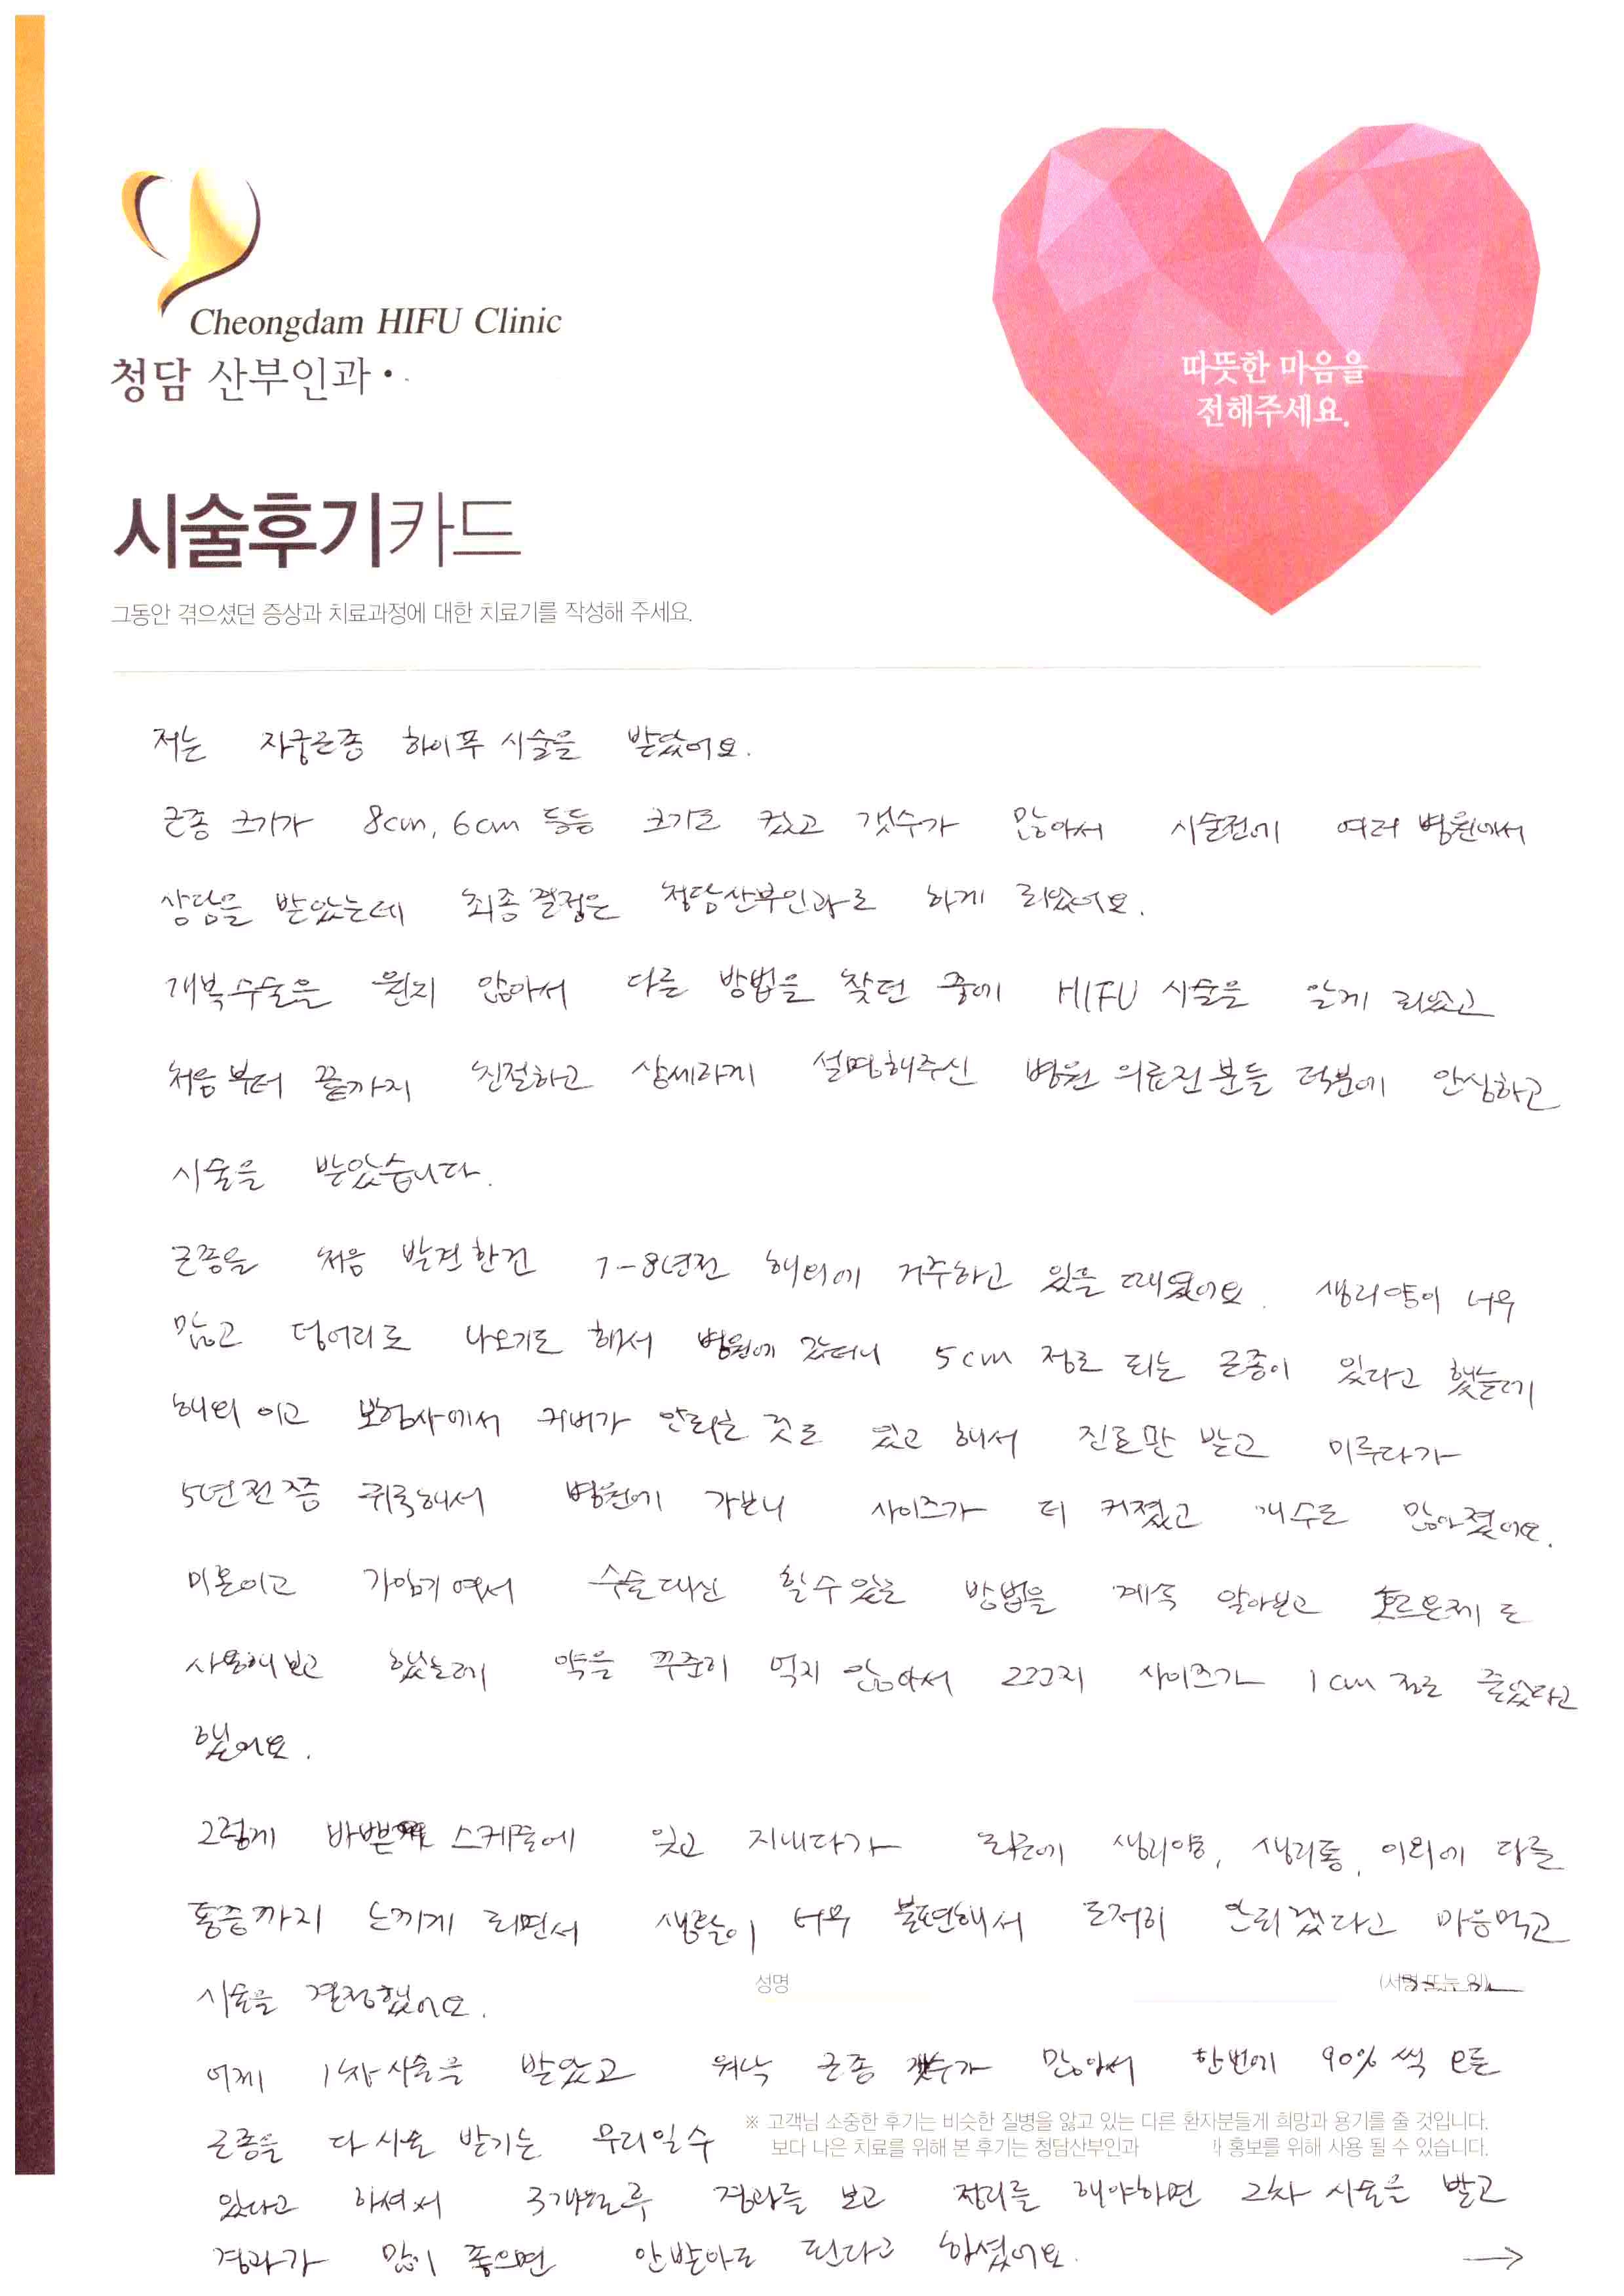 Cheongdam HIFU Clinic
청담 산부인과
따뜻한 마음을
전해주세요.
시술후기카드
그동안 겪으셨던 증상과 치료과정에 대한 치료기를 작성해 주세요.
저는 자궁근종 하이푸 시술을 받았어요.
근종 크기가 8cm, 6cm 등등 크기도 컸고 갯수가 많아서 시술전에 여러 병원에서
상담을 받았는데 최종결정은 청담산부인과로 하게 되었어요.
개복수술을 원치 않아서 다른 방법을 찾던 중에 HIFU 시술을 알게 되었고
처음부터 끝까지 친절하고 상세하게 설명해주신 병원 의료진분들 덕분에 안심하고
시술을 받았습니다.
근종을 처음 발견한건 7-8년전 해외에 거주하고 있을 때였어요. 생리양이 너무
많고 덩어리로 나오기도 해서 병원에 갔더니 5cm 정도 되는 근종이 있다고 했는데
해외이고 보험사에서 커버가 안되는 것도 있고 해서 진료만 받고 미루다가
5년전쯤 귀국해서 병원에 가보니 사이즈가 더 커졌고 개수도 많아졌어요.
미혼이고 가임기여서 수술대신 할수있는 방법을 계속 알아보고 호르몬제도
사용해보고 했는데 약을 꾸준히 먹지 않아서 그런지 사이즈가 1cm 정도 줄었다고
했어요.
그렇게 바쁜 스케줄에 잊고 지내다가 최근에 생리양, 생리통, 이외에 다른
통증까지 느끼게 되면서 생활이 너무 불편해서 도저히 안되겠다고 마음먹고
시술을 결정했어요.
성명
(서명 또는 인)
어제 1차 시술을 받았고 워낙 근종 갯수가 많아서 한번에 90% 씩 모든
근종을 다 시술 받기는 무리일수
※ 고객님 소중한 후기는 비슷한 질병을 앓고 있는 다른 환자분들게 희망과 용기를 줄 것입니다.
보다 나은 치료를 위해 본 후기는 청담산부인과 홍보를 위해 사용 될 수 있습니다.
있다고 하셔서 3개월후 경과를 보고 정리를 해야하면 2차 시술을 받고
경과가 많이 좋으면 안받아도 된다고 하셨어요.
→